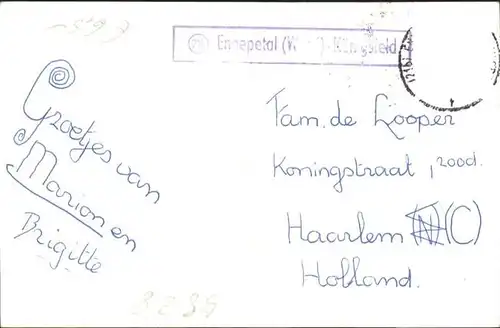 Ennepetal (W
Groetjes van
Marion en
Brigitte
Fam. de Looper
Koningstraat 1,2ood.
Haarlem (C)
Holland.